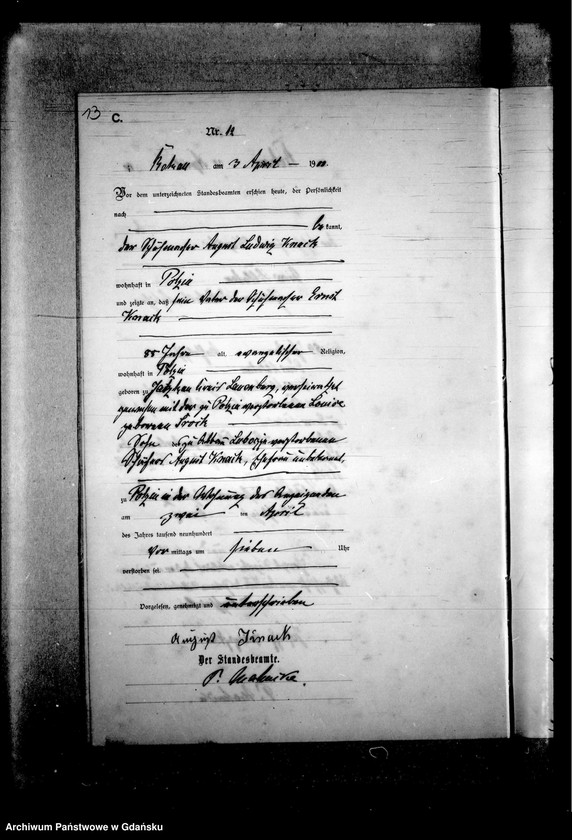 13
C.
Nr. 12
am 3 April 1900
Vor dem unterzeichneten Standesbeamten erschien heute, der Persönlichkeit
nach
be kannt,
der Schuhmacher August Ludwig Knaack
wohnhaft in Polzin
und zeigte an, daß sein Vater der Schuhmacher Ernst
Knaack
88 Jahre alt, evangelischer Religion,
wohnhaft in Polzin
geboren zu Kreis Lauenburg, verheirathet
gewesen mit der zu Polzin verstorbenen Louise
geborenen
Sohn des zu verstorbenen
August Knaack, unbekannt,
zu Polzin in der Wohnung des Anzeigenden
am zwei ten April
des Jahres tausend neunhundert
Vor mittags um sieben Uhr
verstorben sei.
Vorgelesen, genehmigt und unterschrieben
August Knaack
Der Standesbeamte.
Archiwum Państwowe w Gdańsku